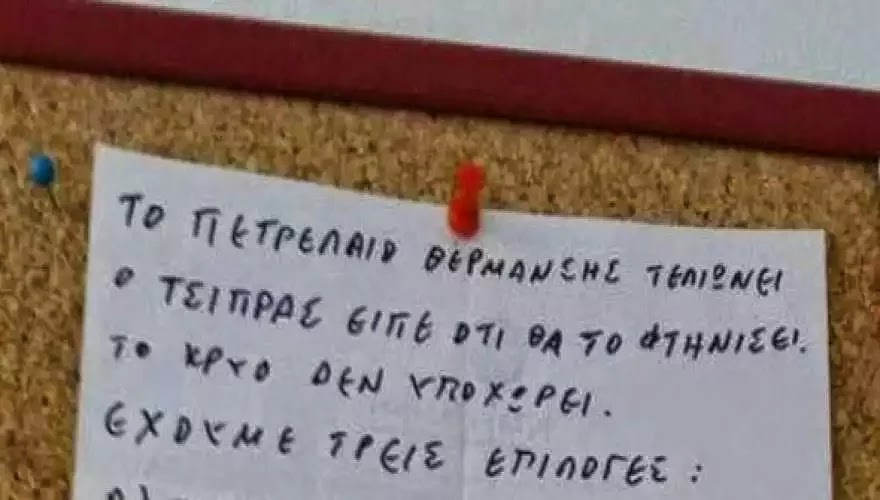 ΤΟ ΠΕΤΡΕΛΑΙΟ ΘΕΡΜΑΝΣΗΣ ΤΕΛΙΩΝΕΙ
Ο ΤΣΙΠΡΑΣ ΕΙΠΕ ΟΤΙ ΘΑ ΤΟ ΦΤΗΝΙΣΕΙ.
ΤΟ ΚΡΥΟ ΔΕΝ ΥΠΟΧΩΡΕΙ.
ΕΧΟΥΜΕ ΤΡΕΙΣ ΕΠΙΛΟΓΕΣ: